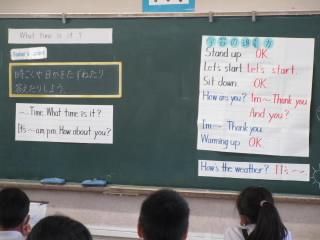 What time is it?
Today's point
時こくや日かをたずねたり
答えたりしよう。
～Time. What time is it?
It's～am.pm. How about you?
学習の進め方
Stand up OK
Let's start Let's start.
Sit down. OK
How are you? I'm～Thank you
And you?
I'm～ Thank you
Warming up OK
How's the weather? It's～.